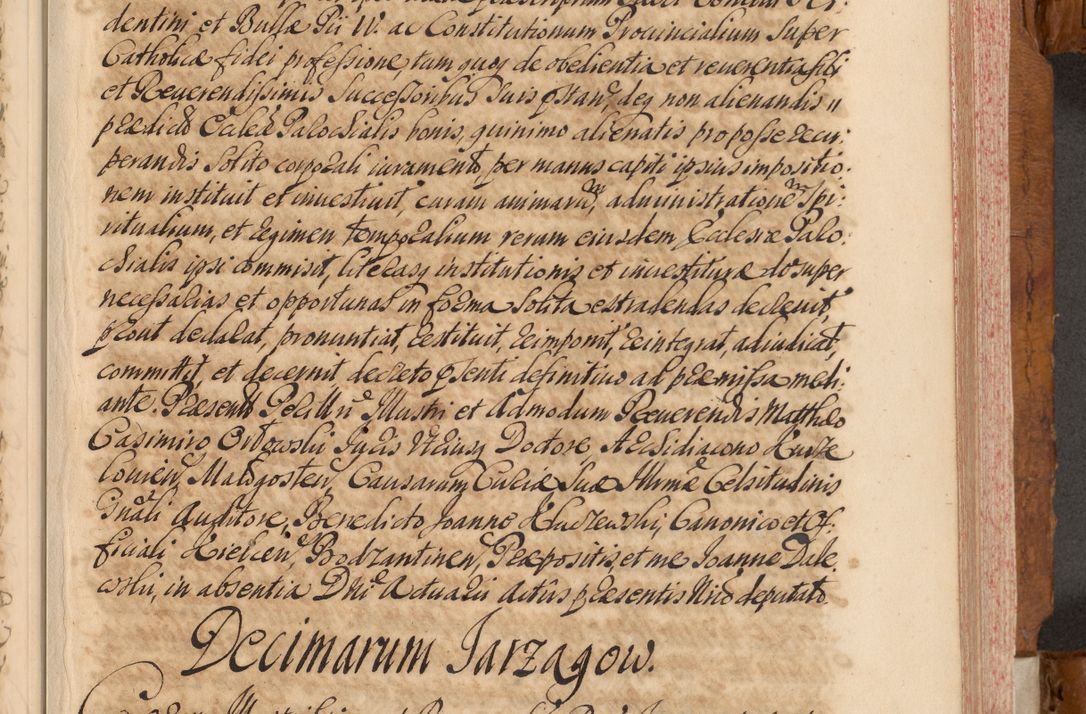 dentini et Bullæ Pii IV. ac Constitutionum Provincialium Super
Catholicæ fidei professione, tam quoq de obedientia et reverentia sibi
et Reverendissimis Successoribus Suis pstanda, deq non alienandis
prædictæ Ecclæ Parochialis bonis, quinimo alienatis pro posse recu-
perandis Solito corporali iuramento, per manus capiti ipsius impositio-
nem instituit et investivit, curam animarum, administratione Spi-
ritualium, et regimen temporalium rerum eiusdem Ecclesiæ Paro-
chialis ipsi commisit, literasq institutionis et investituræ desuper
necessarias et opportunas in forma Solita extradendas decrevit,
prout declarat, pronuntiat, restituit, reimponit, reintegrat, adiudicat,
committit, et decernit decreto psenti definitivo ad præmissa medi-
ante. Præsent Perillri Illustri et Admodum Reverendis Matthæo
Casimiro Doctore Archidiacono Kurze
loviens, Malogosten, Causarum Curiæ Suæ Illmæ Celsitudinis
Gnali Auditore, Benedicto Joanne Kluczewski, Canonico et Of-
ficiali Kielcien, Bodzantinen, Præpositis, et me Joanne Dale
wski, in absentia Dni Actuarii Actûs præsentis Nrio deputato.
Decimarum Jarzagow.